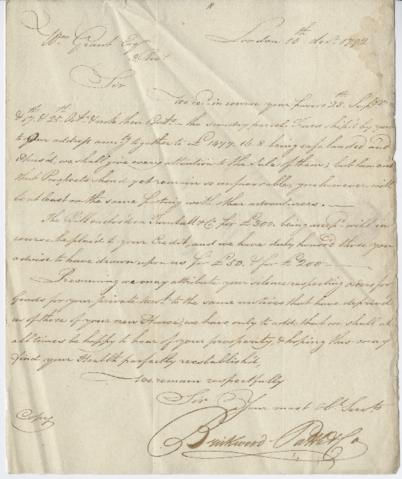 Wm Grant Esqr London 16th Novr 1792
Sir
We recd in course your favors 28 Septr
& 17th & 25th Octr & with them Bill of the sundry parcels Furs ship'd by you
to our address amtg together to £1477.14.8 being safe landed and
Hous'd, we shall give every attention to the Sale of them; but lament
that Prospects should yet remain so unfavorable, you however will
be at least on the same footing with other adventurers.
The for £300. being accepd will in
course be plac'd to your Credit, and we have duly honor'd those you
advise to have drawn upon us for £50 & for £200
Presuming we may attribute your silence respecting orders for
Goods for your private Acct to the same motives that have depriv'd
us of those of your new House; we have only to add, that we shall at
all times be happy to hear of your prosperity, & hoping this may
find your Health perfectly reestablish'd,
We remain respectfully
Sir
Copy Your most Obt Servts
Brickwood Pattle & Co